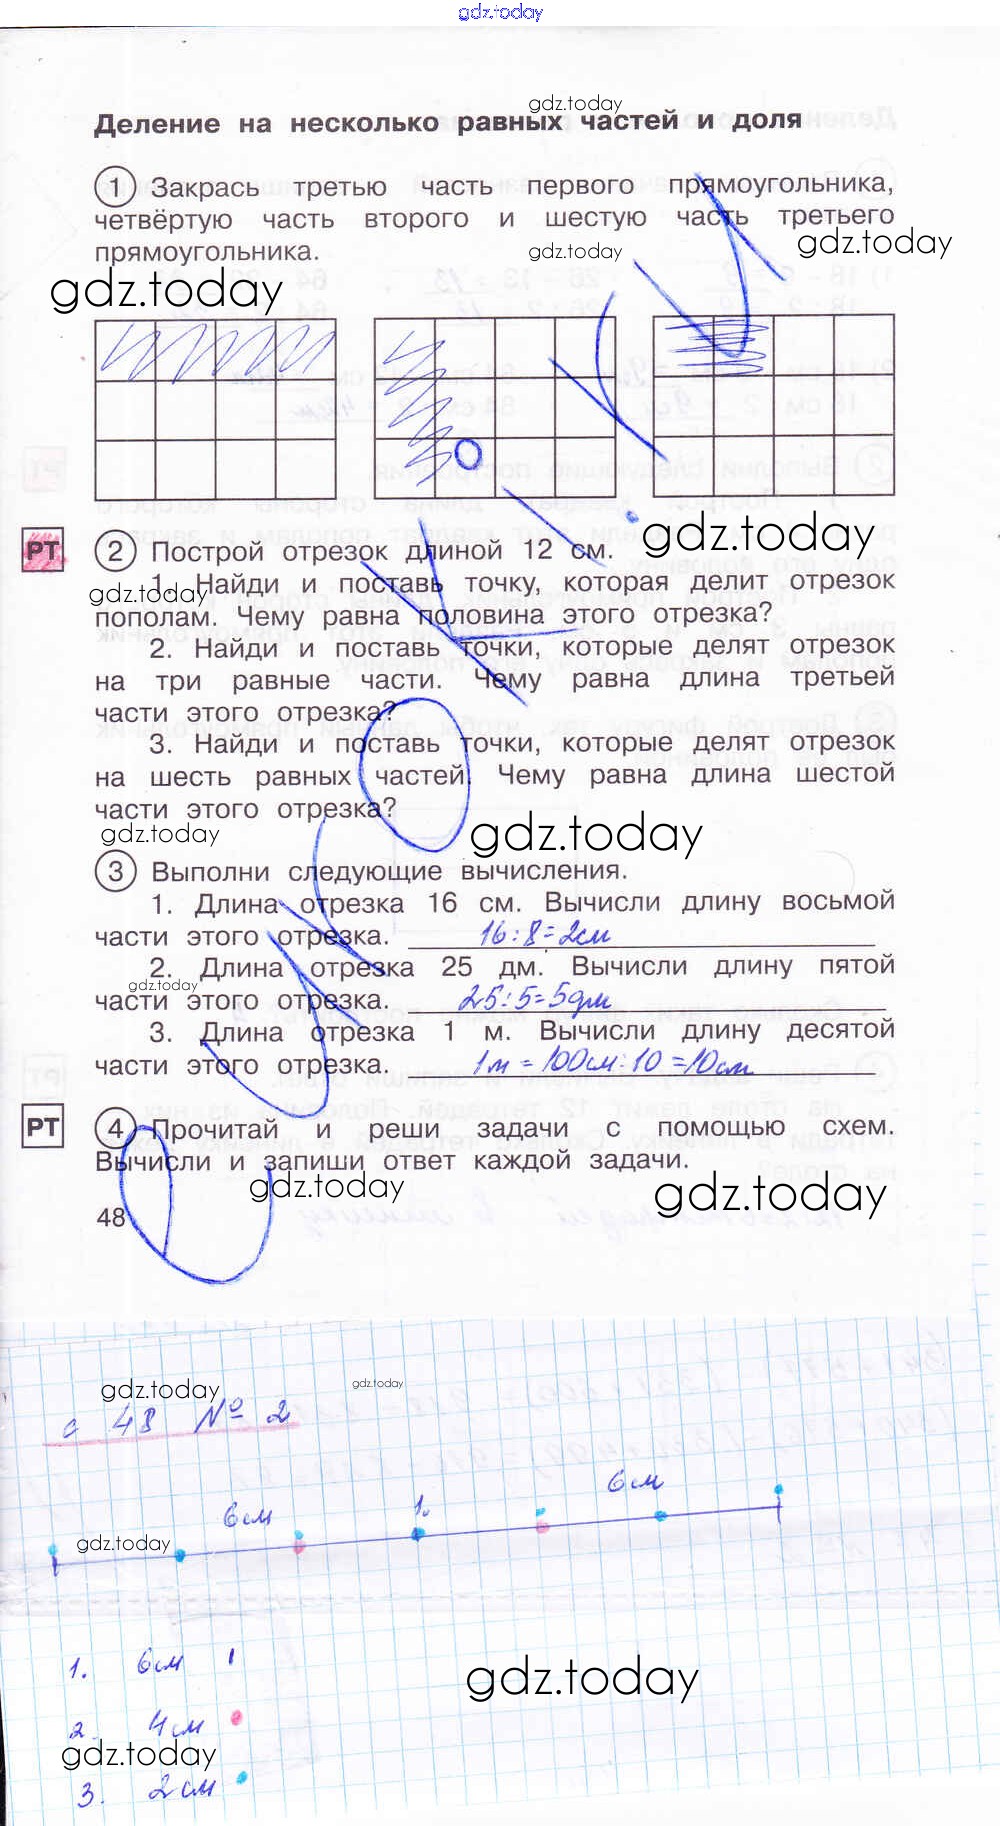 gdz.today
gdz.today
Деление на несколько равных частей и доля
1 Закрась третью часть первого прямоугольника,
четвёртую часть второго и шестую часть третьего
прямоугольника.
gdz.today
gdz.today
gdz.today
gdz.today
РТ 2 Построй отрезок длиной 12 см.
1. Найди и поставь точку, которая делит отрезок
gdz.today
пополам. Чему равна половина этого отрезка?
2. Найди и поставь точки, которые делят отрезок
на три равные части. Чему равна длина третьей
части этого отрезка?
3. Найди и поставь точки, которые делят отрезок
на шесть равных частей. Чему равна длина шестой
части этого отрезка?
gdz.today
gdz.today
3 Выполни следующие вычисления.
1. Длина отрезка 16 см. Вычисли длину восьмой
части этого отрезка. 16:8=2см
2. Длина отрезка 25 дм. Вычисли длину пятой
gdz.today
части этого отрезка. 25:5=5дм
3. Длина отрезка 1 м. Вычисли длину десятой
части этого отрезка. 1м = 100см:10 =10см
РТ 4 Прочитай и реши задачи с помощью схем.
Вычисли и запиши ответ каждой задачи.
gdz.today
gdz.today
48
gdz.today
gdz.today
с 48 № 2
6см 1. 6см
gdz.today
1. 6см
gdz.today
2. 4см
gdz.today
3. 2см